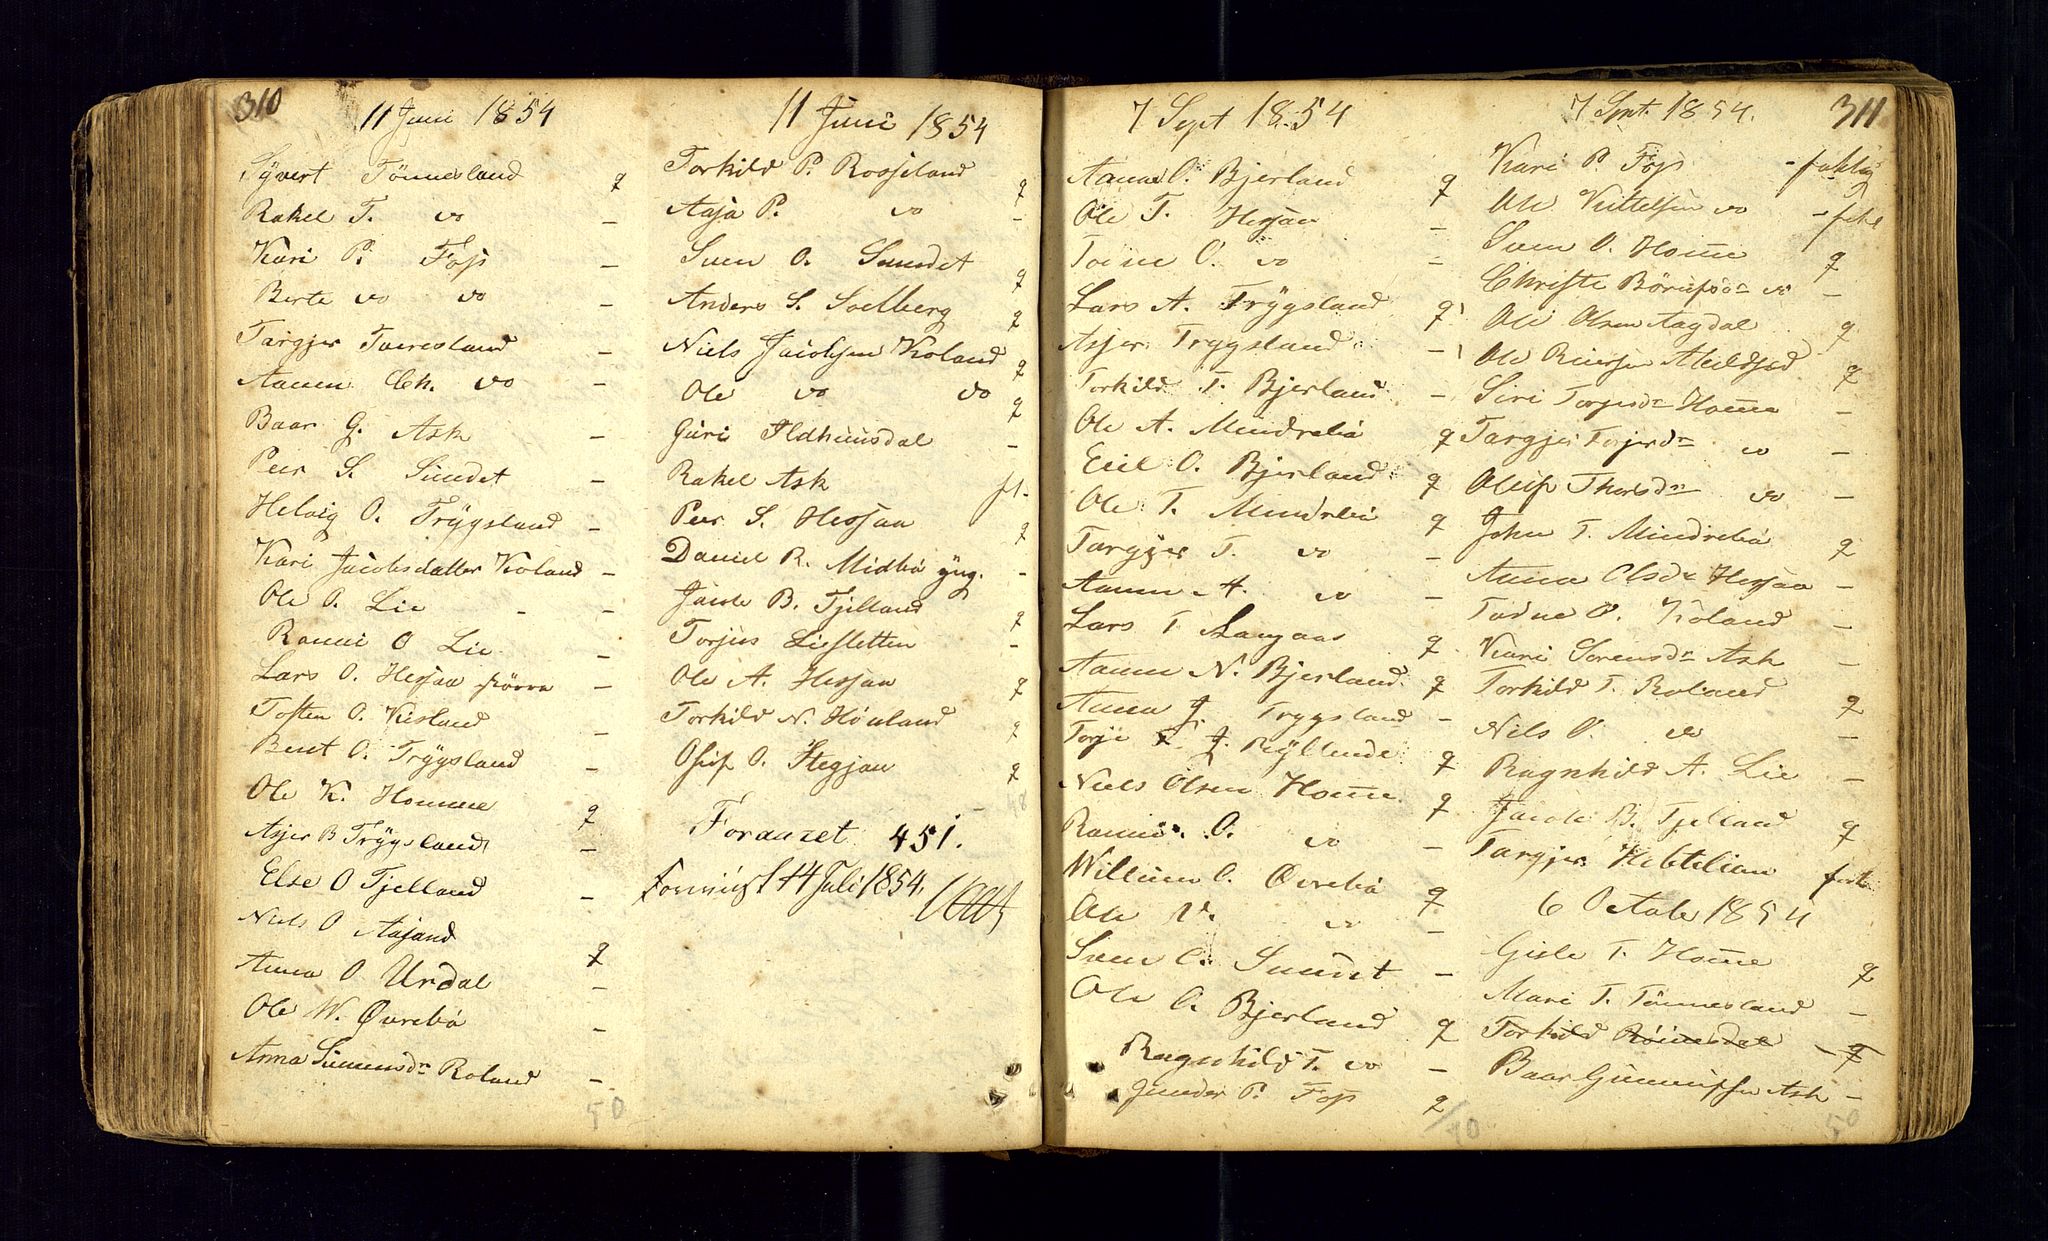 310
11 Juni 1854
Syvert Tönnesland g
Rakel T. do -
Kari P. Fojs -
Berte do do -
Targjer Tveresland -
Aanen Ch. do -
Baar G. Ask -
Peer S. Sundet -
Helvig O. Trÿgsland -
Kari Jacobsdatter Koland -
Ole O. Lie - -
Ranni O Lie -
Lars O. Hesjaa större -
Tosten O. Kisland -
Bent O. Trÿgsland -
Ole K. Homme g
Asjer B Trÿgsland -
Else O Tjelland -
Niels O Aasand g
Anna O Urdal -
Ole W. Øvrebö -
Anna Simensdr Roland -
50
11 Juni 1854
Torkild P. Rossiland g
Aasa P. do -
Sven O. Sundet g
Anders S. Soelberg g
Niels Jacobsen Koland g
Ole do do g
Guri Ildhuusdal -
Rakel Ask f.
Peer S. Hesjaa g
Daniel R. Midbö yng. -
Jacob B. Tjelland g
Torjus Liesletten -
Ole A. Hesjaa g
Torkild N. Hönland g
Osuf O. Stegjan g
48
Foranset 451.
14 Juli 1854.
7 Sept 1854
Aanas O. Bjerland g
Ole T. Hesjaa -
Torine O. do -
Lars A. Trÿgsland g
Asjer Trygsland -
Torkild T. Bjerland -
Ole A. Mindrebö g
Eeil O. Bjerland g
Ole T. Mindrebö g
Targjer T. do -
Aanen A. do -
Lars T. Langaas g
Aanen N. Bjerland g
Anna J. Trygsland -
Torje J. Rÿllende g
Niels Olsen Home g
Ranni O. do -
Willum O. Øvrebö g
Ole V. do -
Sven O. Sundet -
Ole O. Bjerland g
Ragnhild T. do -
Gunder P. Fojs g
70
7 Sept. 1854. 311
Kari P. Fojs - fattig
Ole Kittelsen do -
Sven O. Home g
Christi Börufsdr do -
Ole Olsen Aagdal g
Ole Reiersen g
Siri Torjusdr Home -
Targjer Torjusdr do -
Oluf Thorsdr do -
John T. Mindrebö g
Anna Olsdr Hesjaa -
Todne O. Koland -
Kari Sorensdr Ask -
Torkild T. Roland g
Nils O. do -
Ragnhild A. Lie -
Jacob B. Tjelland g
Targjer Kittelian
6 October 1854
Gisle T. Home g
Mari T. Tönnesland -
Torkild Röinesdal - g
Baar Gunnufsen Ask -
50